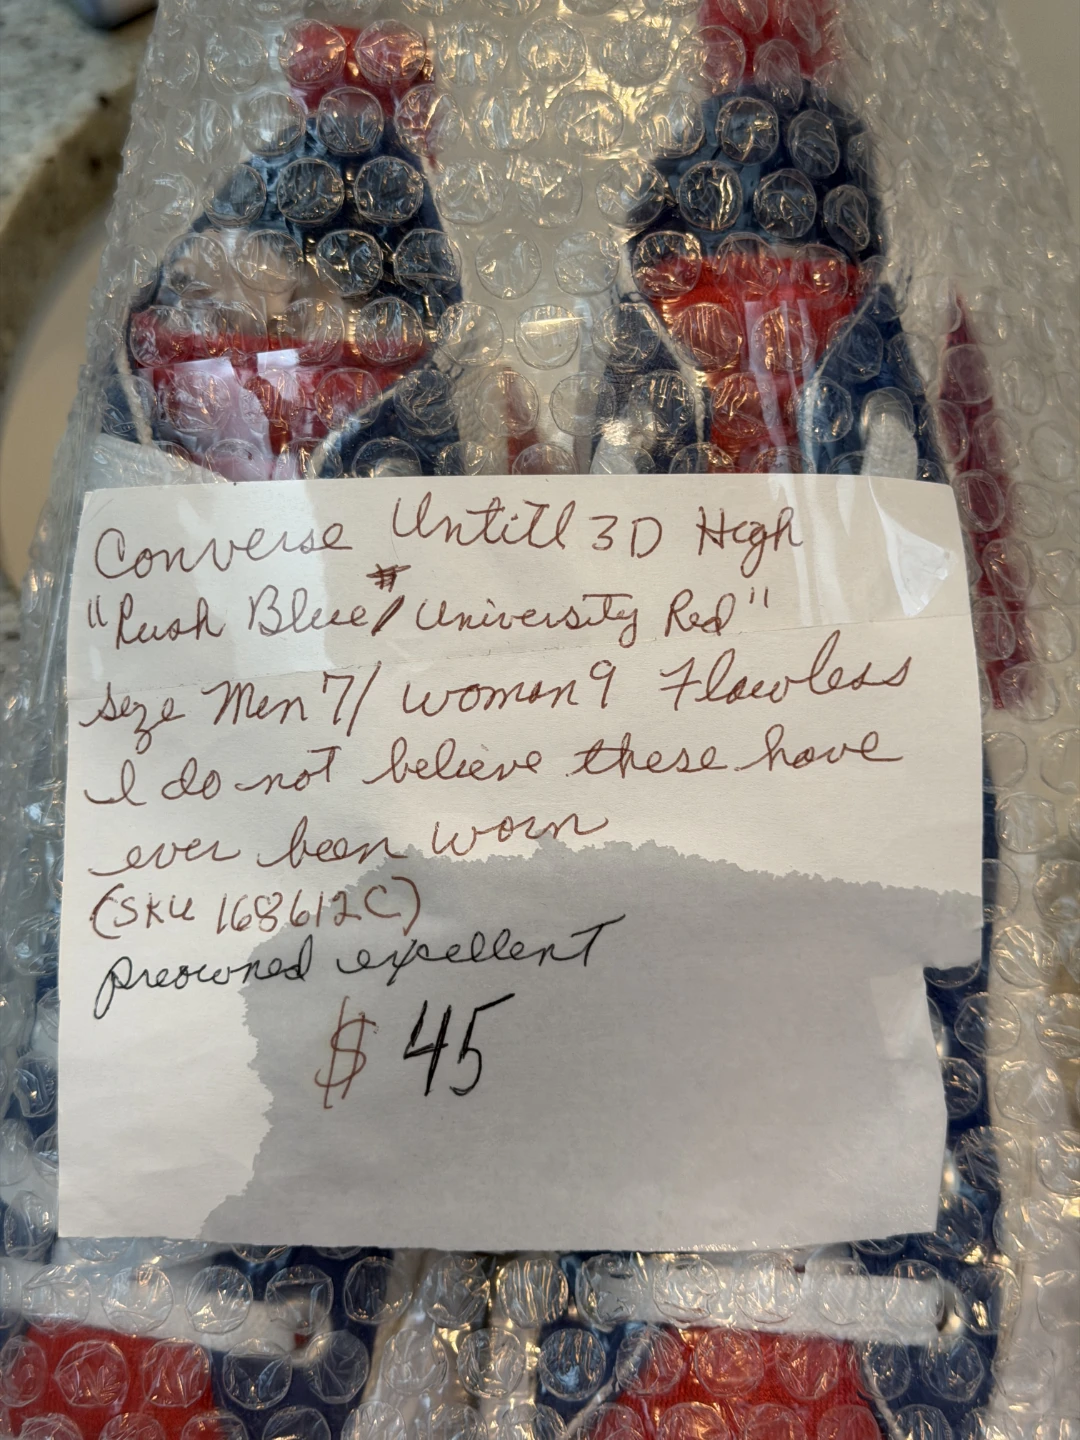 Converse Untitl 3D High
"Rush Blue / University Red"
size Men 7/ woman 9 Flawless
I do not believe these have
ever been worn
(SKU 168612C)
preowned excellent
$ 45